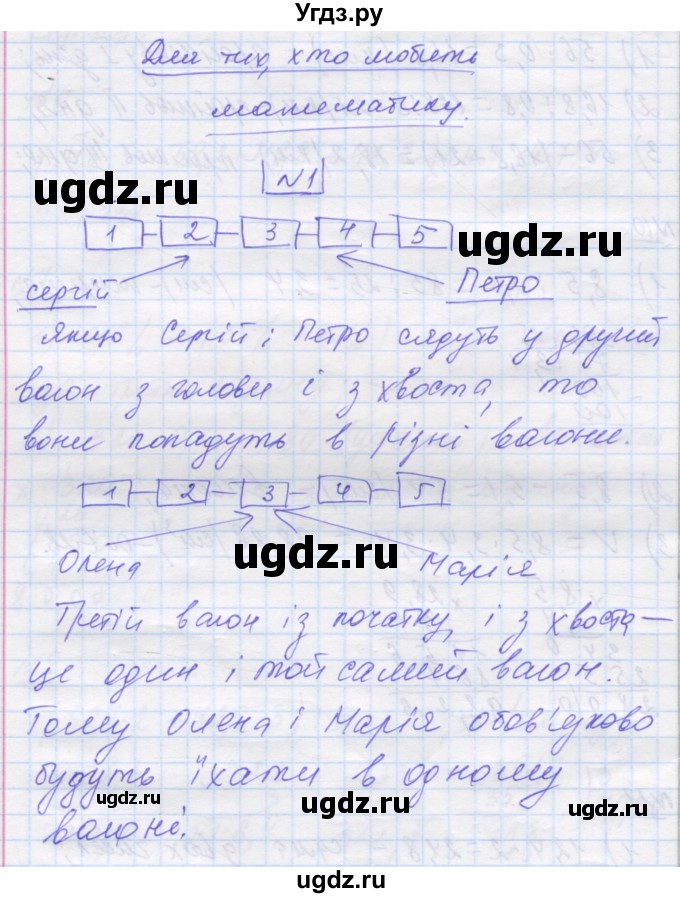 Угдз.ру
Для тих, хто любить
математику.
№1
ugdz.ru
1 2 3 4 5
ugdz.ru
Сергій Петро
Якщо Сергій і Петро сядуть у другий
вагон з голови і з хвоста, то
вони попадуть в різні вагони.
1 2 3 4 5
ugdz.ru
Олена Марія
Третій вагон із початку, і з хвоста —
це один і той самий вагон.
Тому Олена і Марія обов'язково
будуть їхати в одному
ugdz.ru ugdz.ru ugdz.ru
вагоні.
ugdz.ru